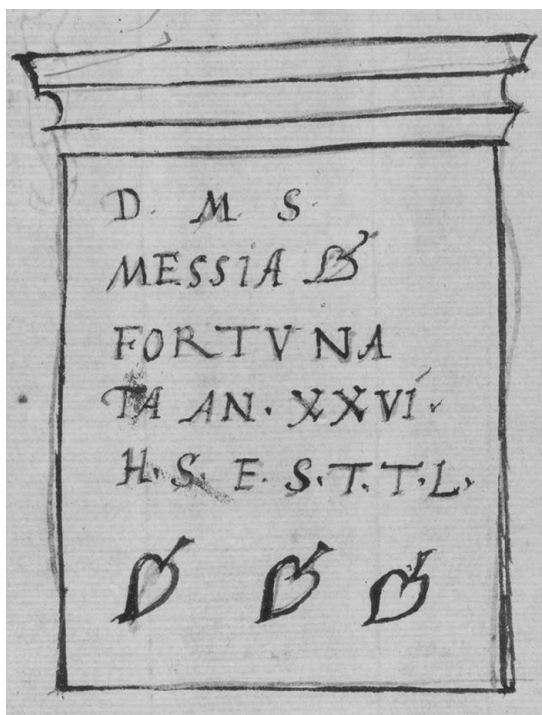 D. M S.
MESSIA ❦
FORTVNA
TA AN. XXVI.
H. S. E. S. T. T. L.
❦ ❦ ❦